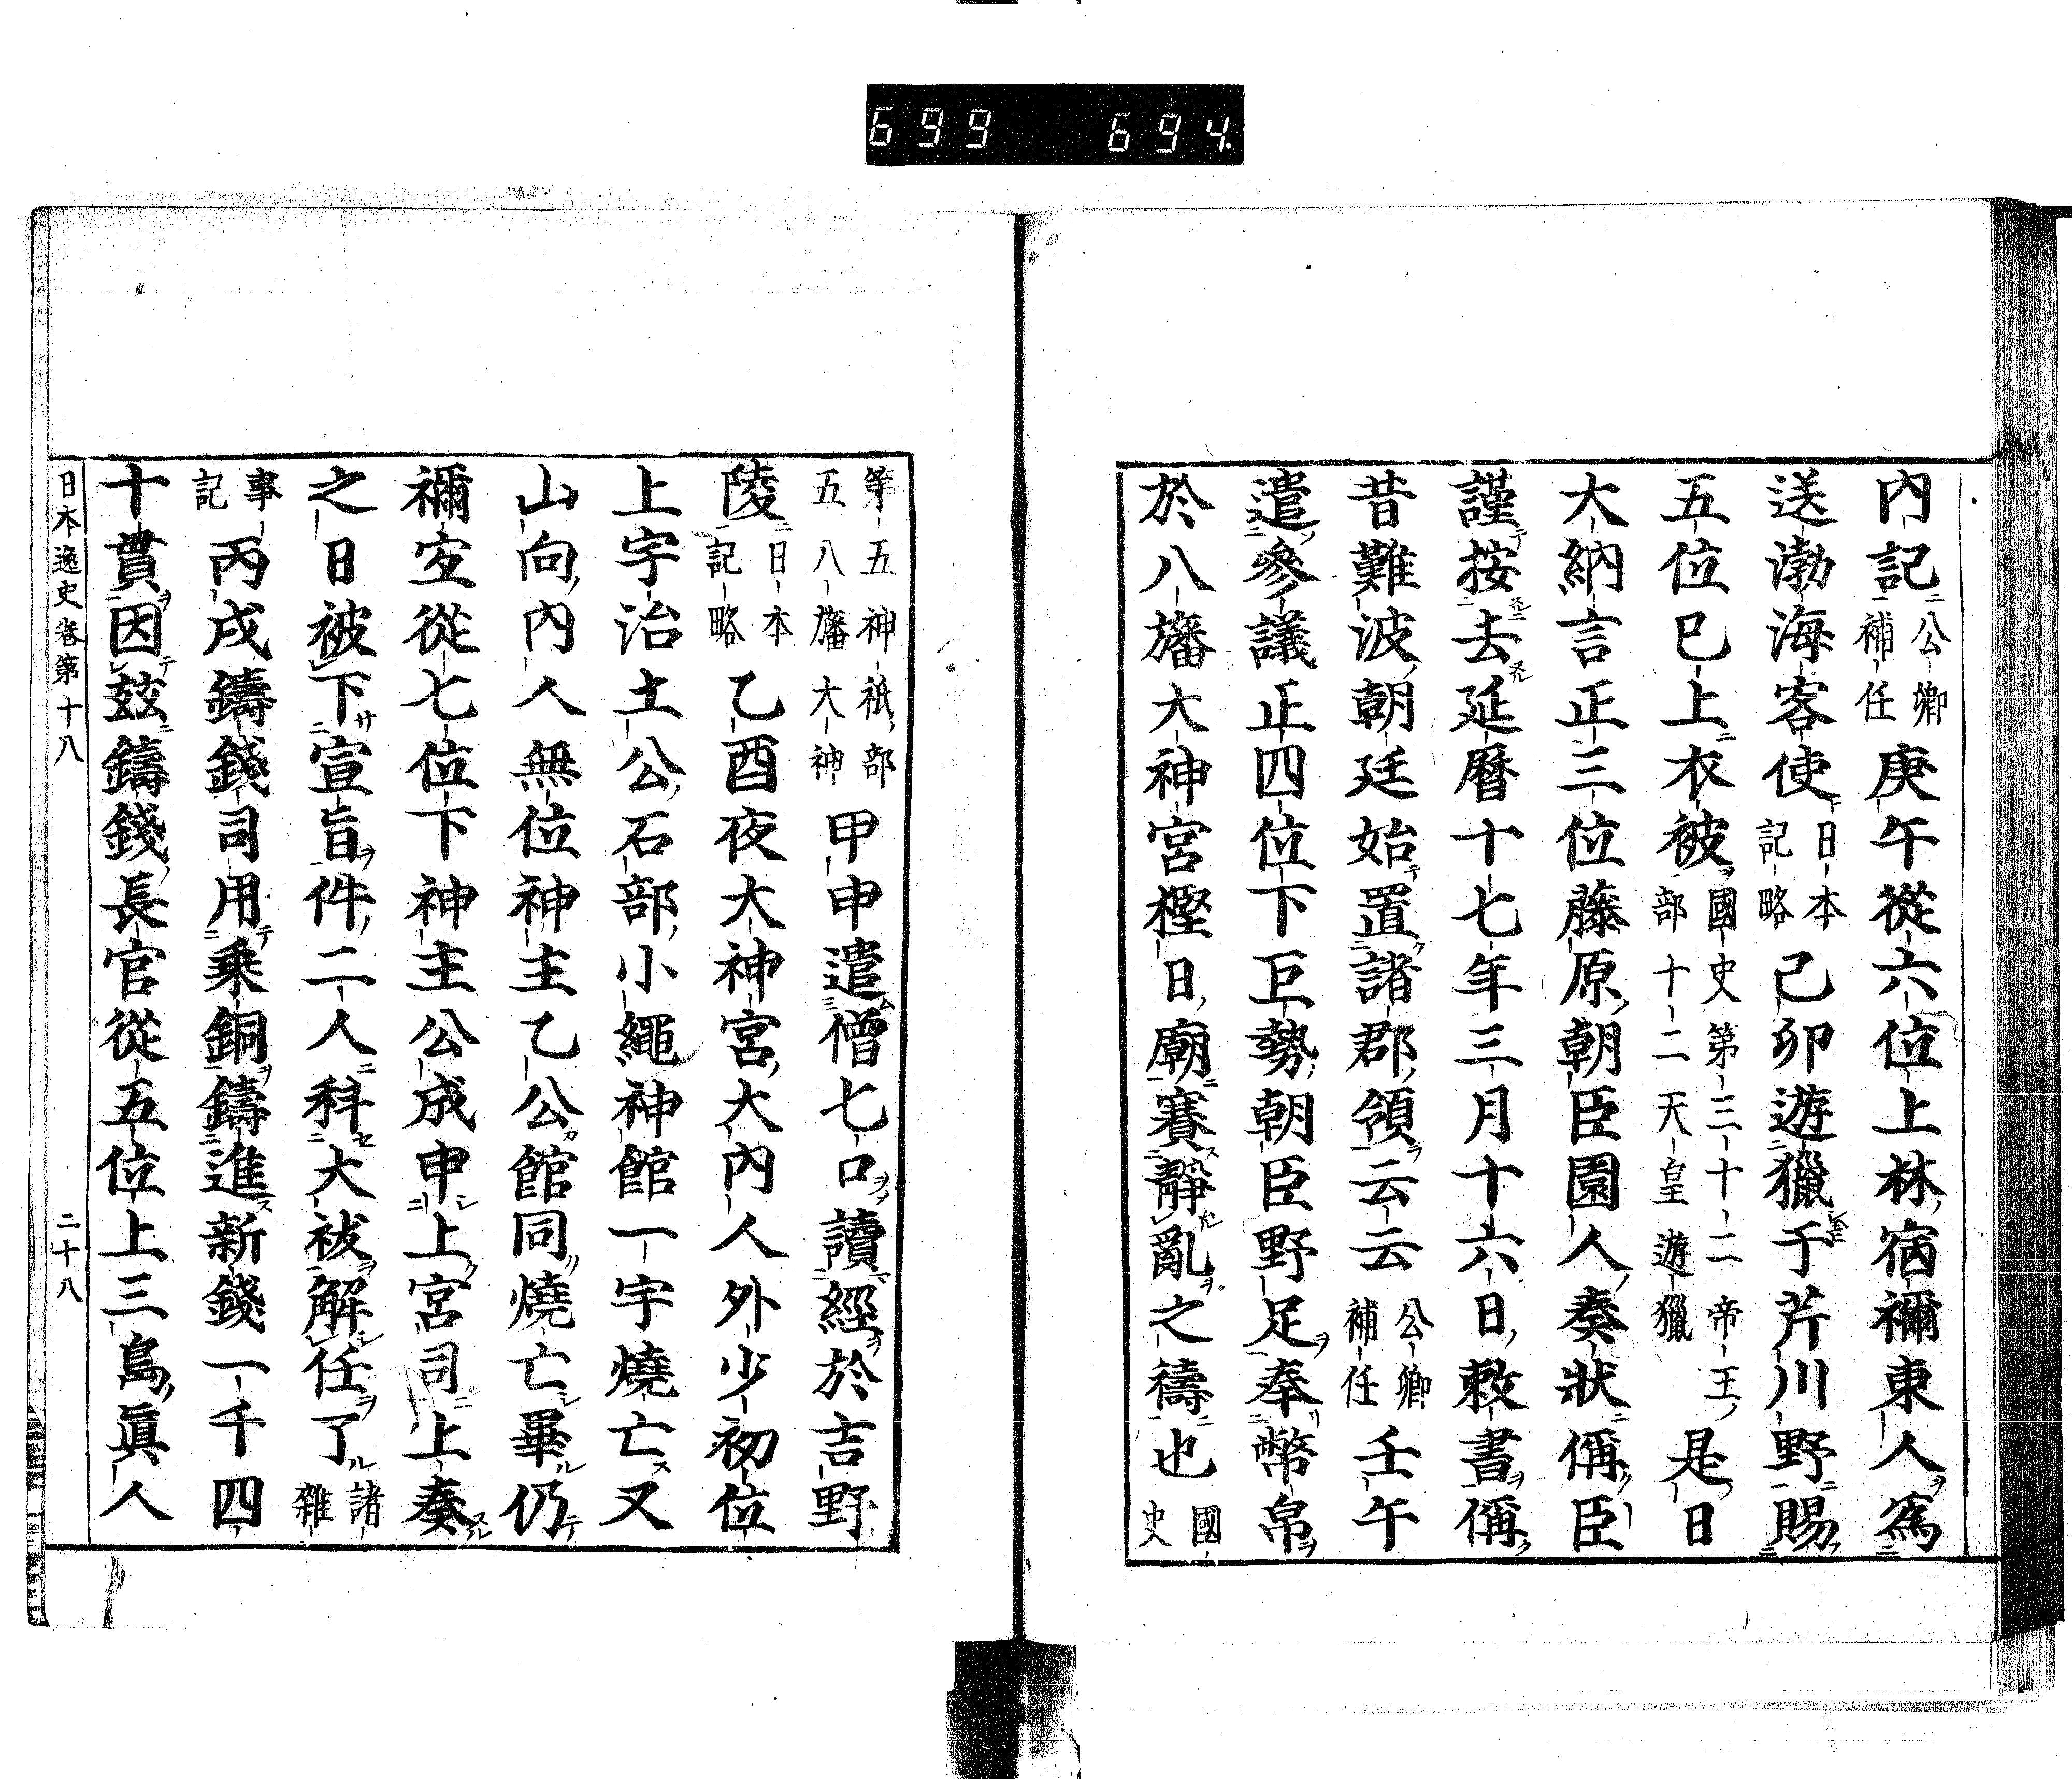 699 694.
內記公卿補任庚午從六位上林宿禰東人爲
送渤海客使日本記略己卯遊獵于芹川野賜
五位已上衣被國史第三十二帝王部十二天皇遊獵是日
大納言正三位藤原朝臣園人奏狀偁臣
謹按去延曆十七年三月十六日敕書偁
昔難波朝廷始置諸郡領云云公卿補任壬午
遣參議正四位下巨勢朝臣野足奉幣帛
於八旛大神宮樫日廟賽靜亂之禱也國史
第五神祇部五八旛大神甲申遣僧七口讀經於吉野
陵日本記略乙酉夜大神宮大內人外少初位
上宇治土公石部小繩神館一宇燒亡又
山向內人無位神主乙公館同燒亡畢仍
禰宜從七位下神主公成申上宮司上奏
之日被下宣旨件二人科大祓解任了諸雜
事記丙戌鑄錢司用乘銅鑄進新錢一千四
十貫因玆鑄錢長官從五位上三島眞人
日本逸史卷第十八 二十八